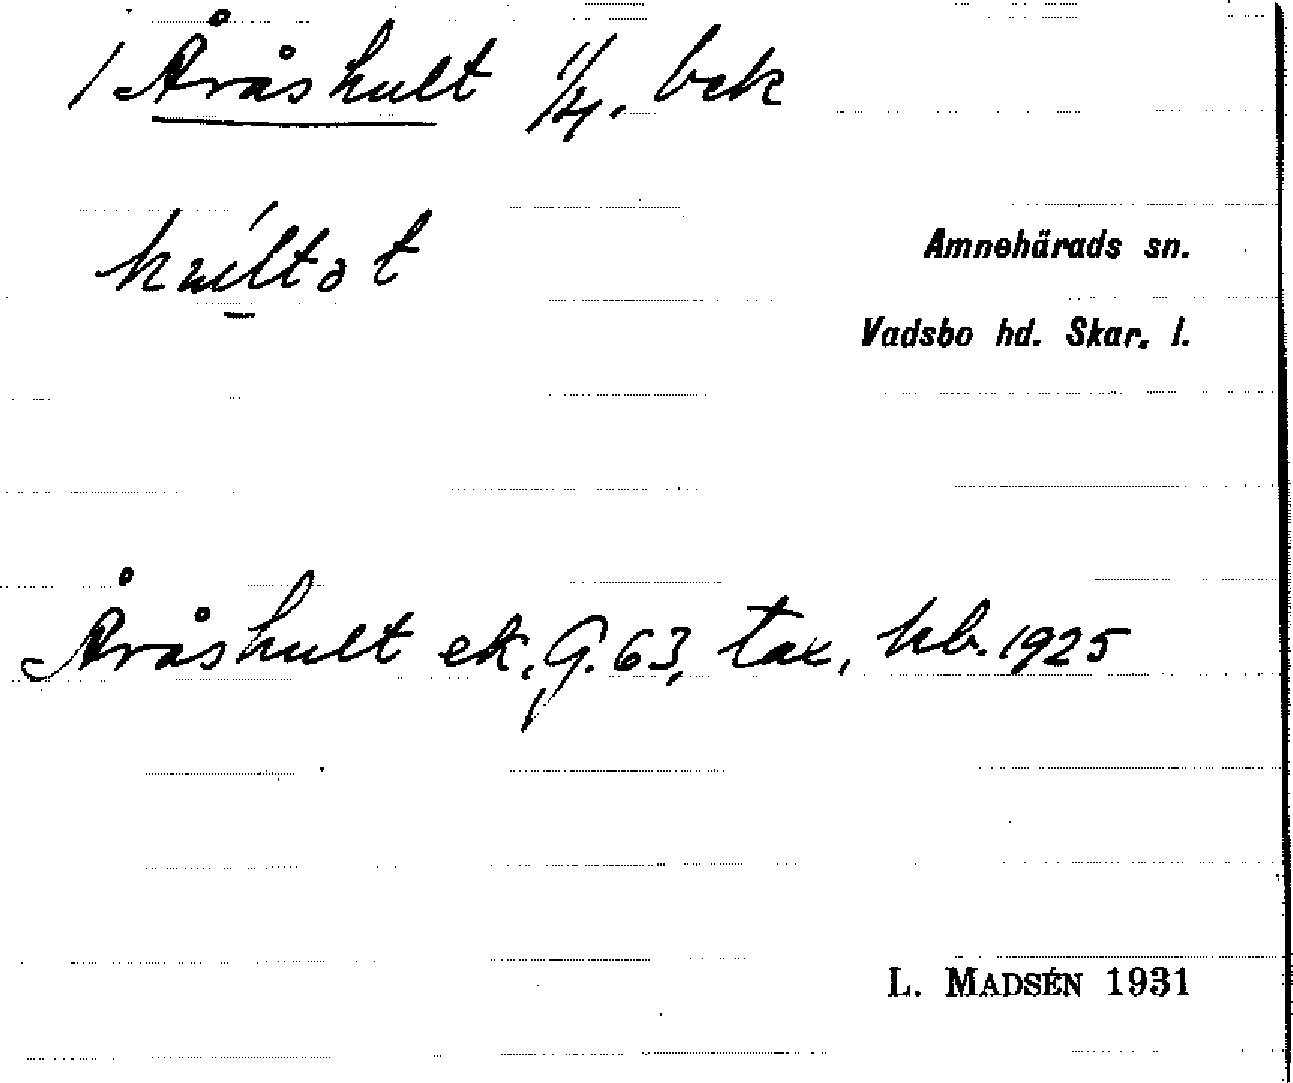 1 Åråshult 1/4. bek
Amnehärads sn.
Vadsbo hd. Skar. l.
Åråshult ek, G. 63, tax, hb. 1925
L. MADSÉN 1931